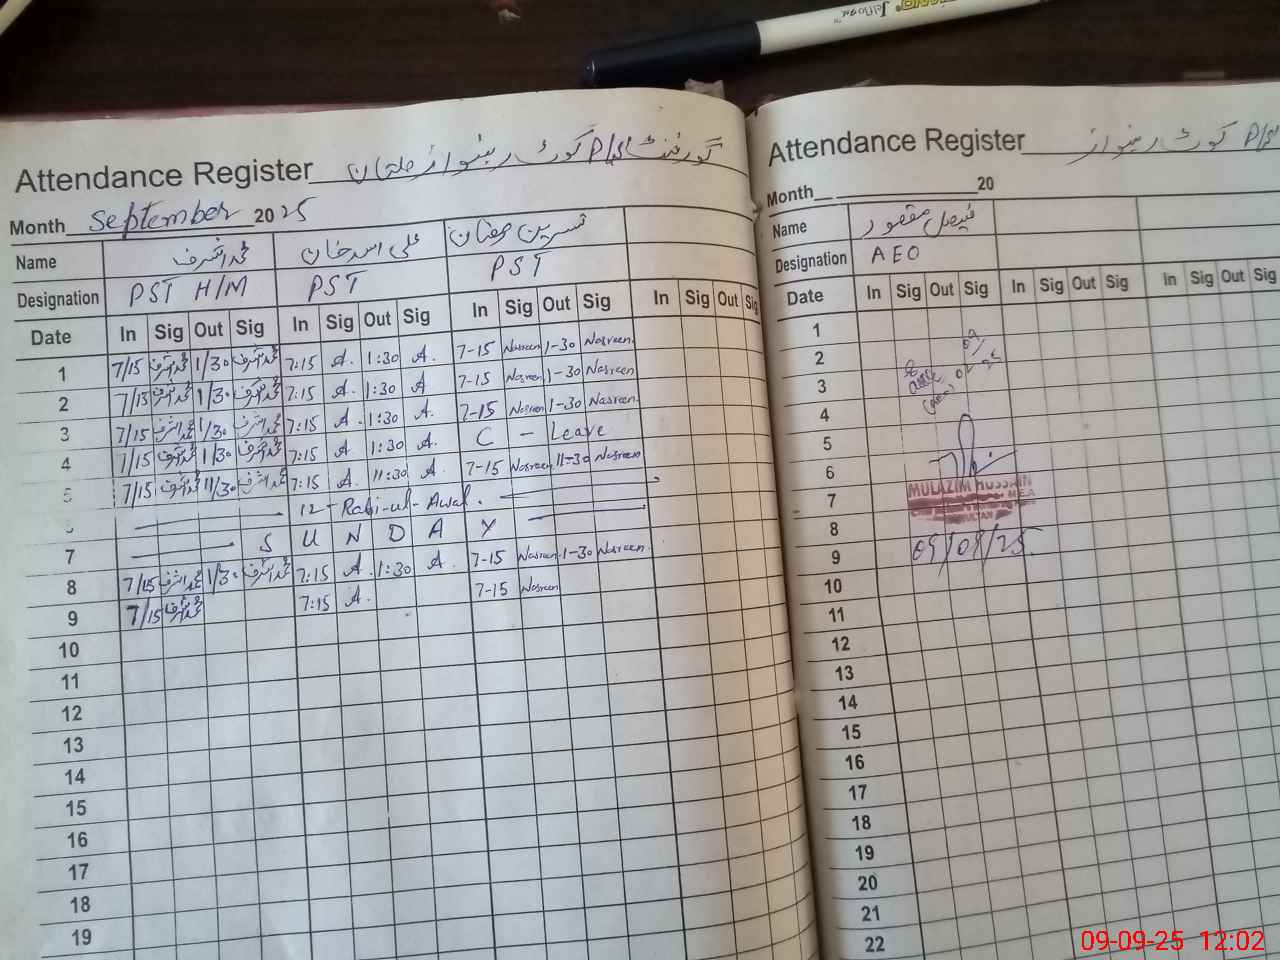 Attendance Register گورنمنٹ P/S کوٹ ربنواز ملتان
Month September 2025
Name محمد اشرف علی اسد خان نسرین رمضان
Designation PST H/M PST PST
Date In Sig Out Sig In Sig Out Sig In Sig Out Sig In Sig Out Sig
1 7/15 محمد اشرف 1/30 محمد اشرف 7:15 A. 1:30 A. 7-15 Nasreen 1-30 Nasreen
2 7/15 محمد اشرف 1/30 محمد اشرف 7:15 A. 1:30 A 7-15 Nasreen 1-30 Nasreen
3 7/15 محمد اشرف 1/30 محمد اشرف 7:15 A. 1:30 A. 7-15 Nasreen 1-30 Nasreen
4 7/15 محمد اشرف 1/30 محمد اشرف 7:15 A 1:30 A. C - Leave
5 7/15 محمد اشرف 11/30 محمد اشرف 7:15 A. 11:30 A. 7-15 Nasreen 11-30 Nasreen
12 - Rabi-ul-Awal.
7 S U N D A Y
8 7/15 محمد اشرف 1/30 محمد اشرف 7:15 A. 1:30 A. 7-15 Nasreen 1-30 Nasreen
9 7/15 محمد اشرف 7:15 A. 7-15 Nasreen
10
11
12
13
14
15
16
17
18
19
Attendance Register کوٹ ربنواز P/S
Month 20
Name فیصل مقصور
Designation AEO
Date In Sig Out Sig In Sig Out Sig In Sig Out Sig
1
2
3
4
5
6
MULAZIM HUSSAIN
7 M.E.A
8 MULTAN
9 09/09/25
10
11
12
13
14
15
16
17
18
19
20
21
22
09-09-25 12:02